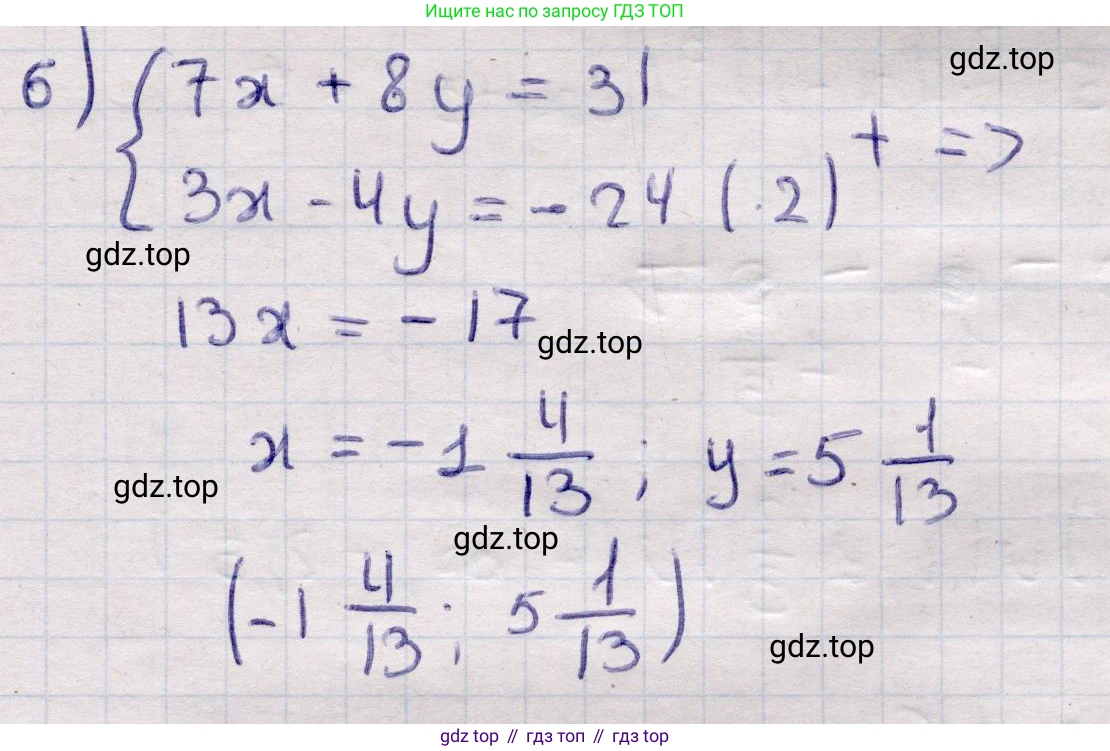 Ищите нас по запросу ГДЗ ТОП
gdz.top
б) { 7x + 8y = 31
3x - 4y = - 24 (·2) + =>
gdz.top
13x = - 17
gdz.top
x = -1 4/13 ; y = 5 1/13
gdz.top
gdz.top
(-1 4/13 ; 5 1/13)
gdz.top
gdz.top // гдз топ // гдз top